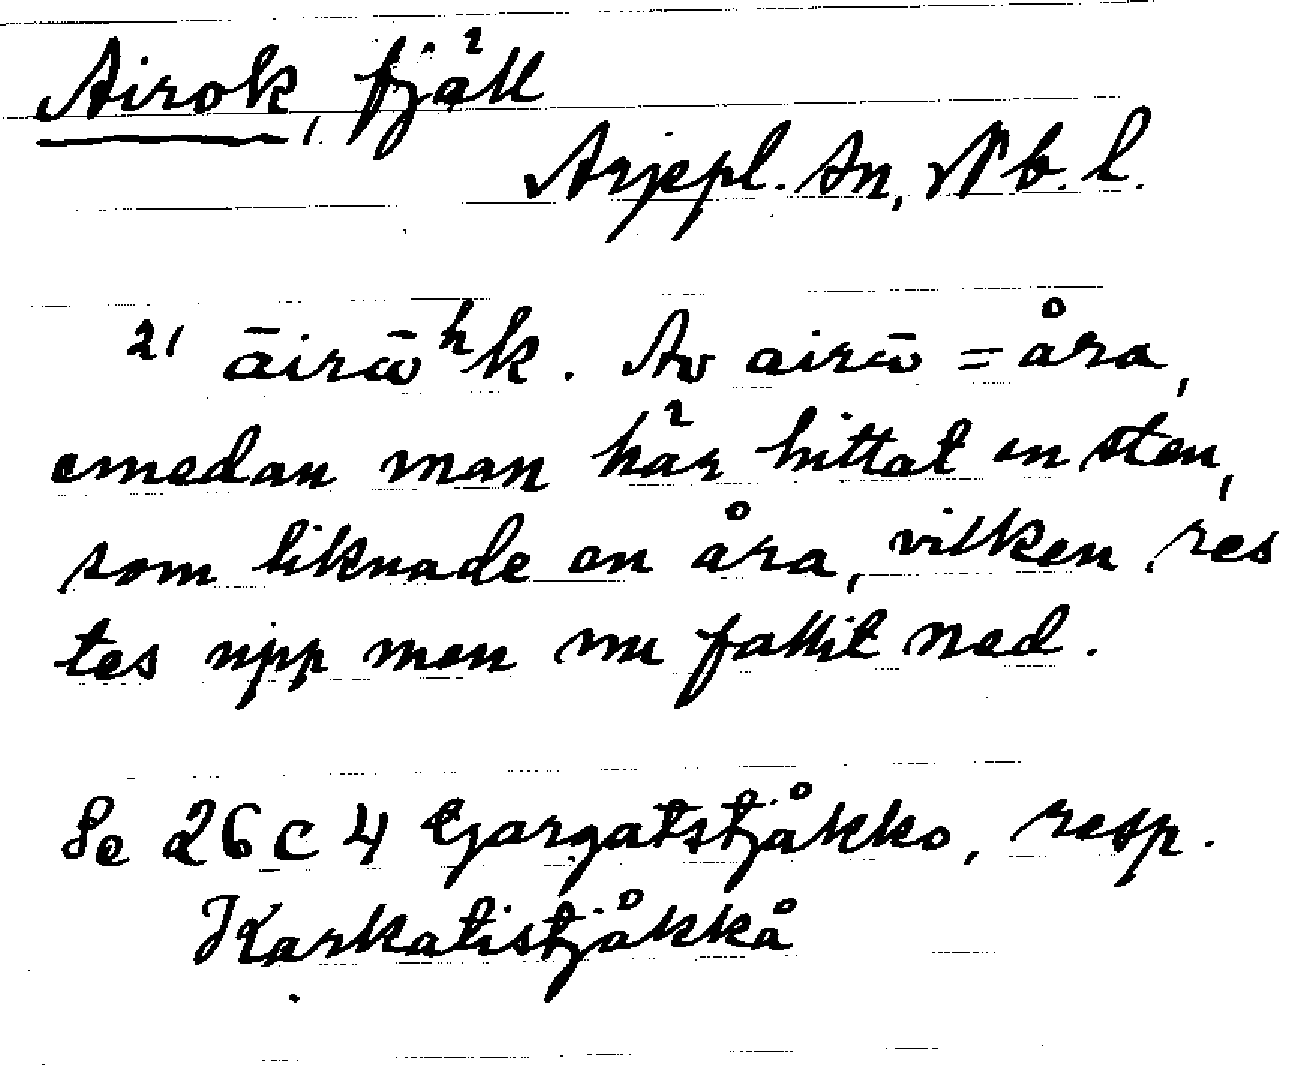 Airok, fjäll
Arjepl. sn, Nb. l.
2/ āirω̄ʰk. Av airω̄ = åra,
emedan man här hittat en sten,
som liknade en åra, vilken res
tes upp men nu fallit ned.
Se 26 C 4 Gargatstjåkko, resp.
Karkatistjåkkå